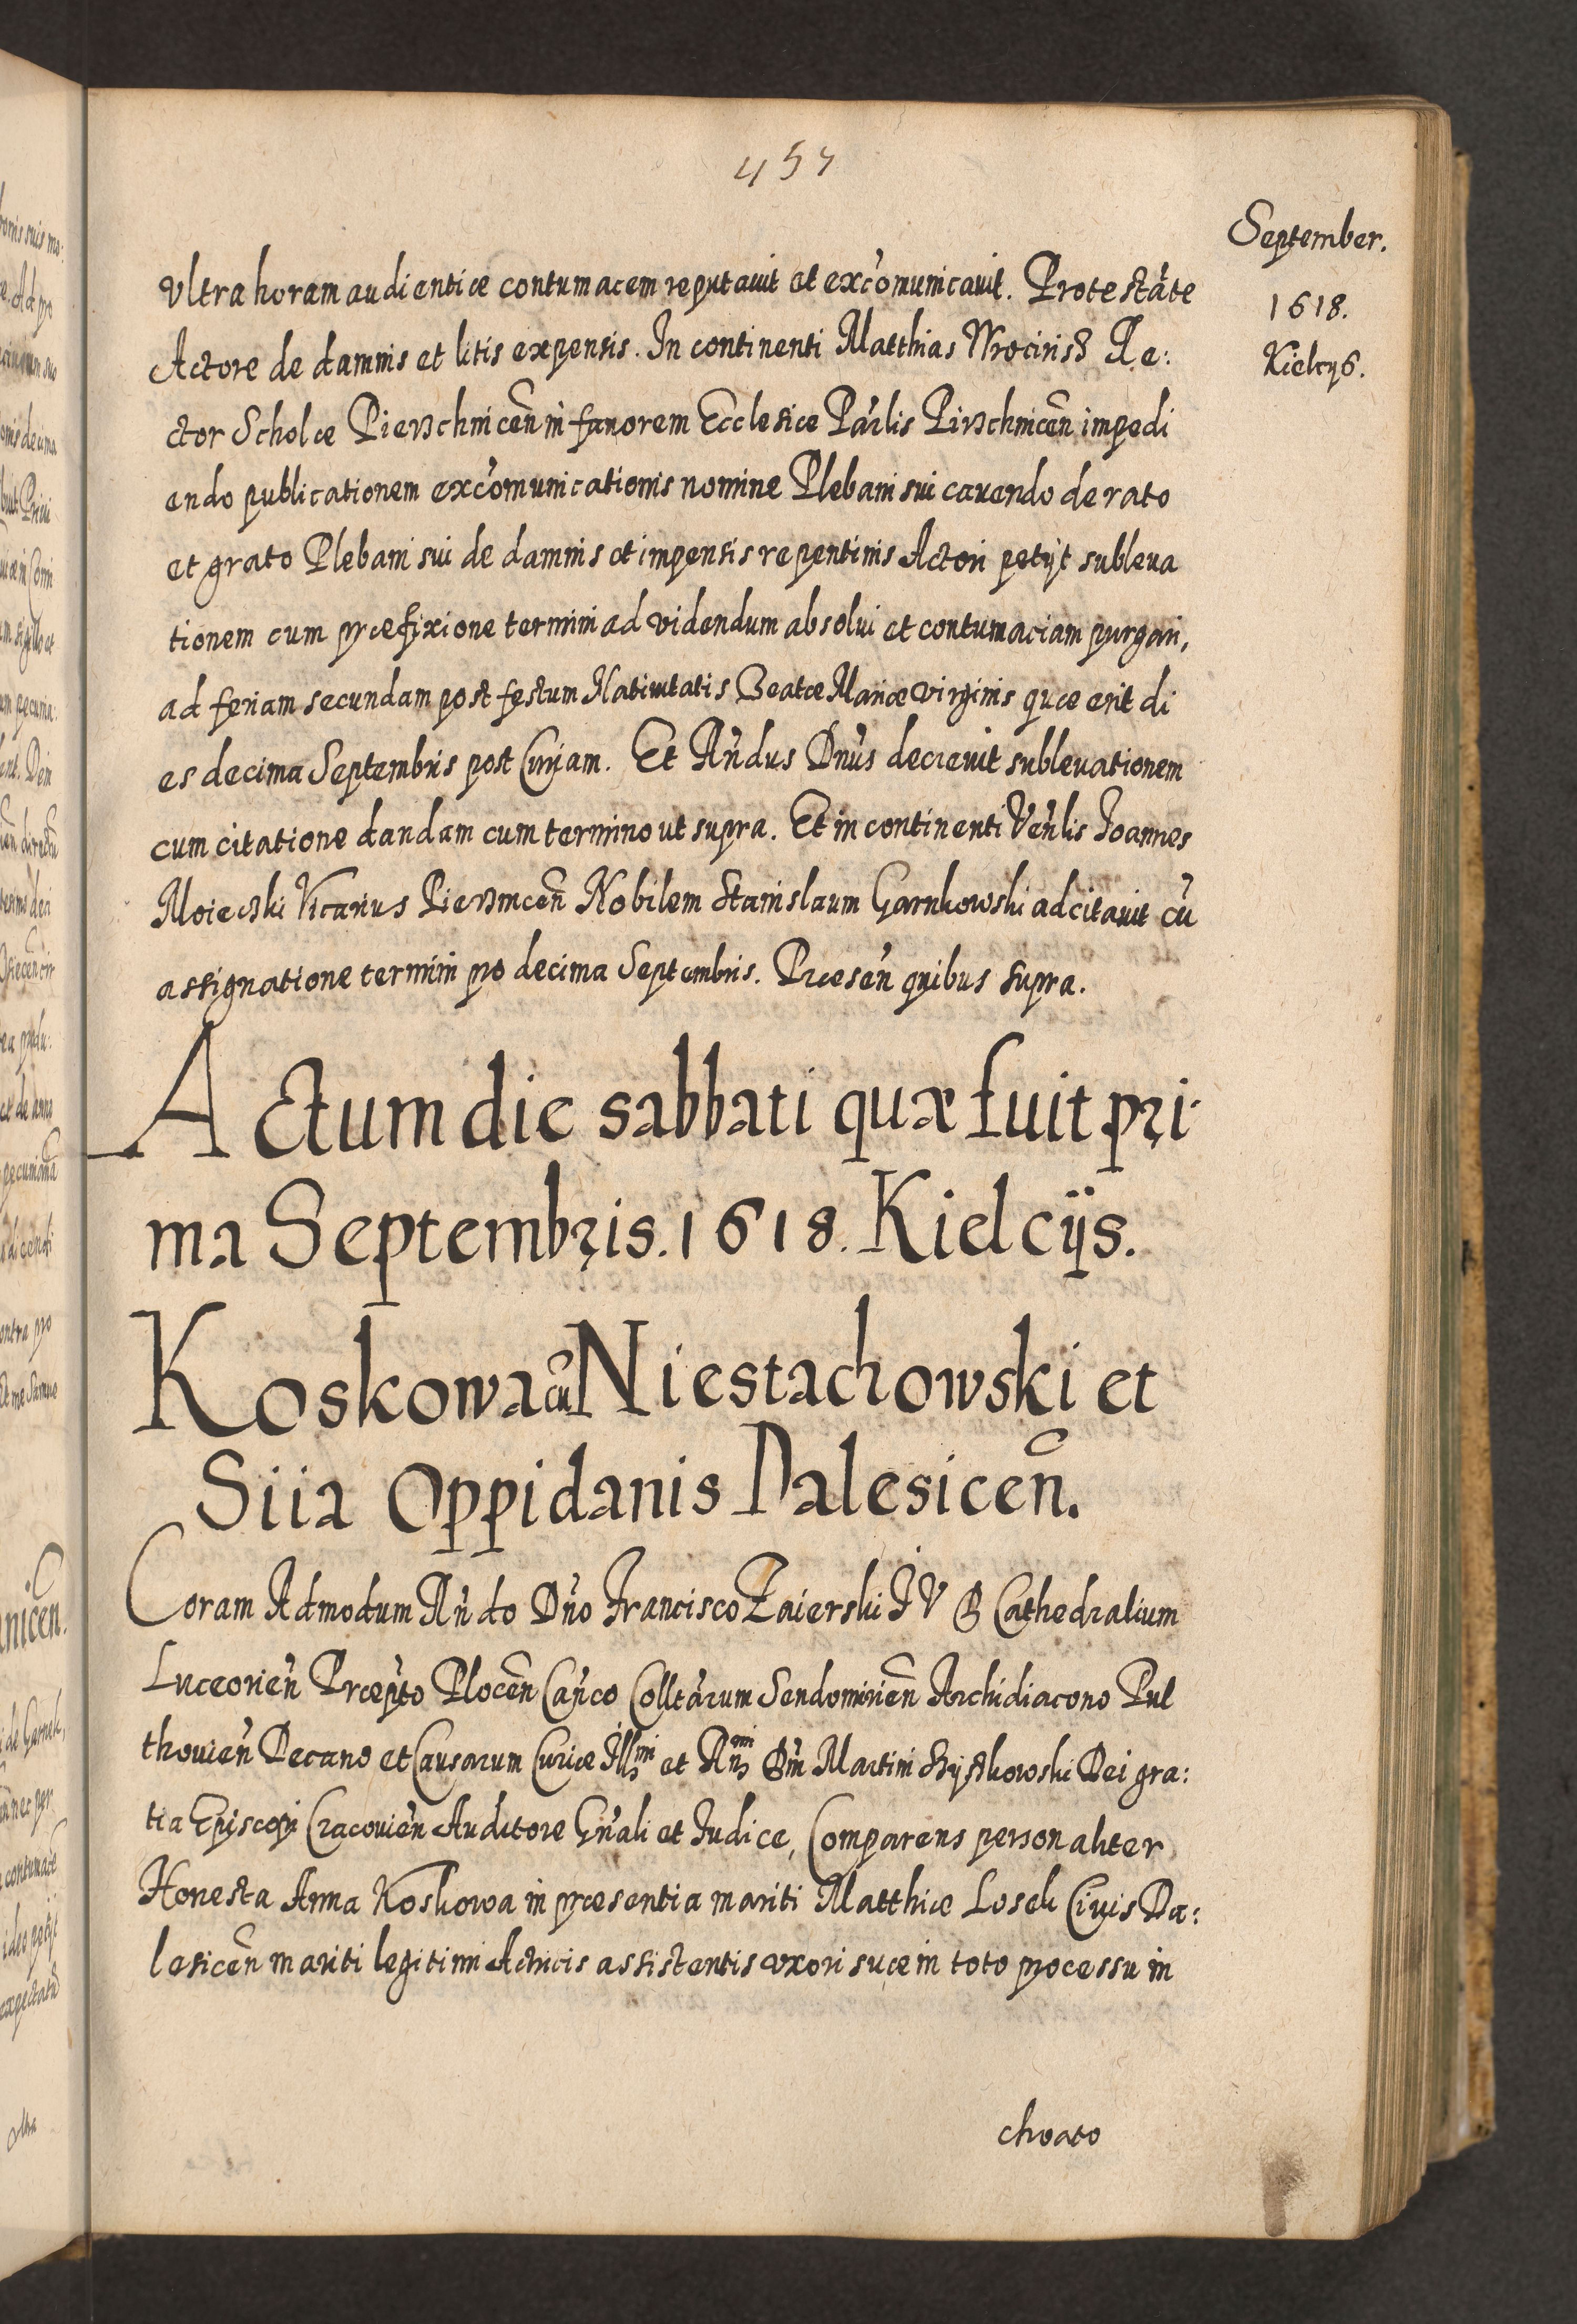 457
September.
1618.
Kielcijs.
Vltra horam audientiæ contumacem reputauit et exco͂municauit. Protestãte
Actore de damnis et litis expensis. In continenti Matthias Wrocinsz Re:
ctor Scholæ Pierzchnicen͂ in fauorem Ecclesiæ Par͂lis Pirzchnicen͂ impedi
endo publicationem exco͂municationis nomine Plebani sui cauendo de rato
et grato Plebani sui de damnis et impensis repentinis Actori petijt subleua
tionem cum præfixione termini ad videndum absolui et contumaciam purgari,
ad feriam secundam post festum Natiuitatis Beatæ Mariæ Virginis quæ erit di
es decima Septembris post Curiam. Et Rn͂dus Dnu͂s decreuit subleuationem
cum citatione dandam cum termino ut supra. Et in continenti Ven͂lis Joannes
Vicarius Nobilem Stanislaum Garnkowski adcitauit cũ
assignatione termini pro decima Septembris. Præsen͂ quibus supra.
Actum die sabbati quæ fuit pri-
ma Septembris. 1618. Kielcijs.
Koskowa cũ Niestachowski et
Siia Oppidanis Dalesicen͂.
Coram Admodum Rn͂do Dn͂o Francisco Zaierski J V D Cathedralium
Luceorien͂ Præpto͂ Plocen͂ Can͂co Collta͂rum Sendomirien͂ Archidiacono Pul
thouien͂ Decano et Causarum Curiæ Illmi et Rmi Dni͂ Martini Szyszkowski Dei gra:
tia Episcopi Cracouien͂ Auditore Gn͂ali et Iudice, Comparens personaliter
Honesta Anna Koskowa in præsentia mariti Matthiæ Losek Ciuis Da:
lesicen͂ mariti legitimi Actricis assistentis vxori suæ in toto processu in
choato